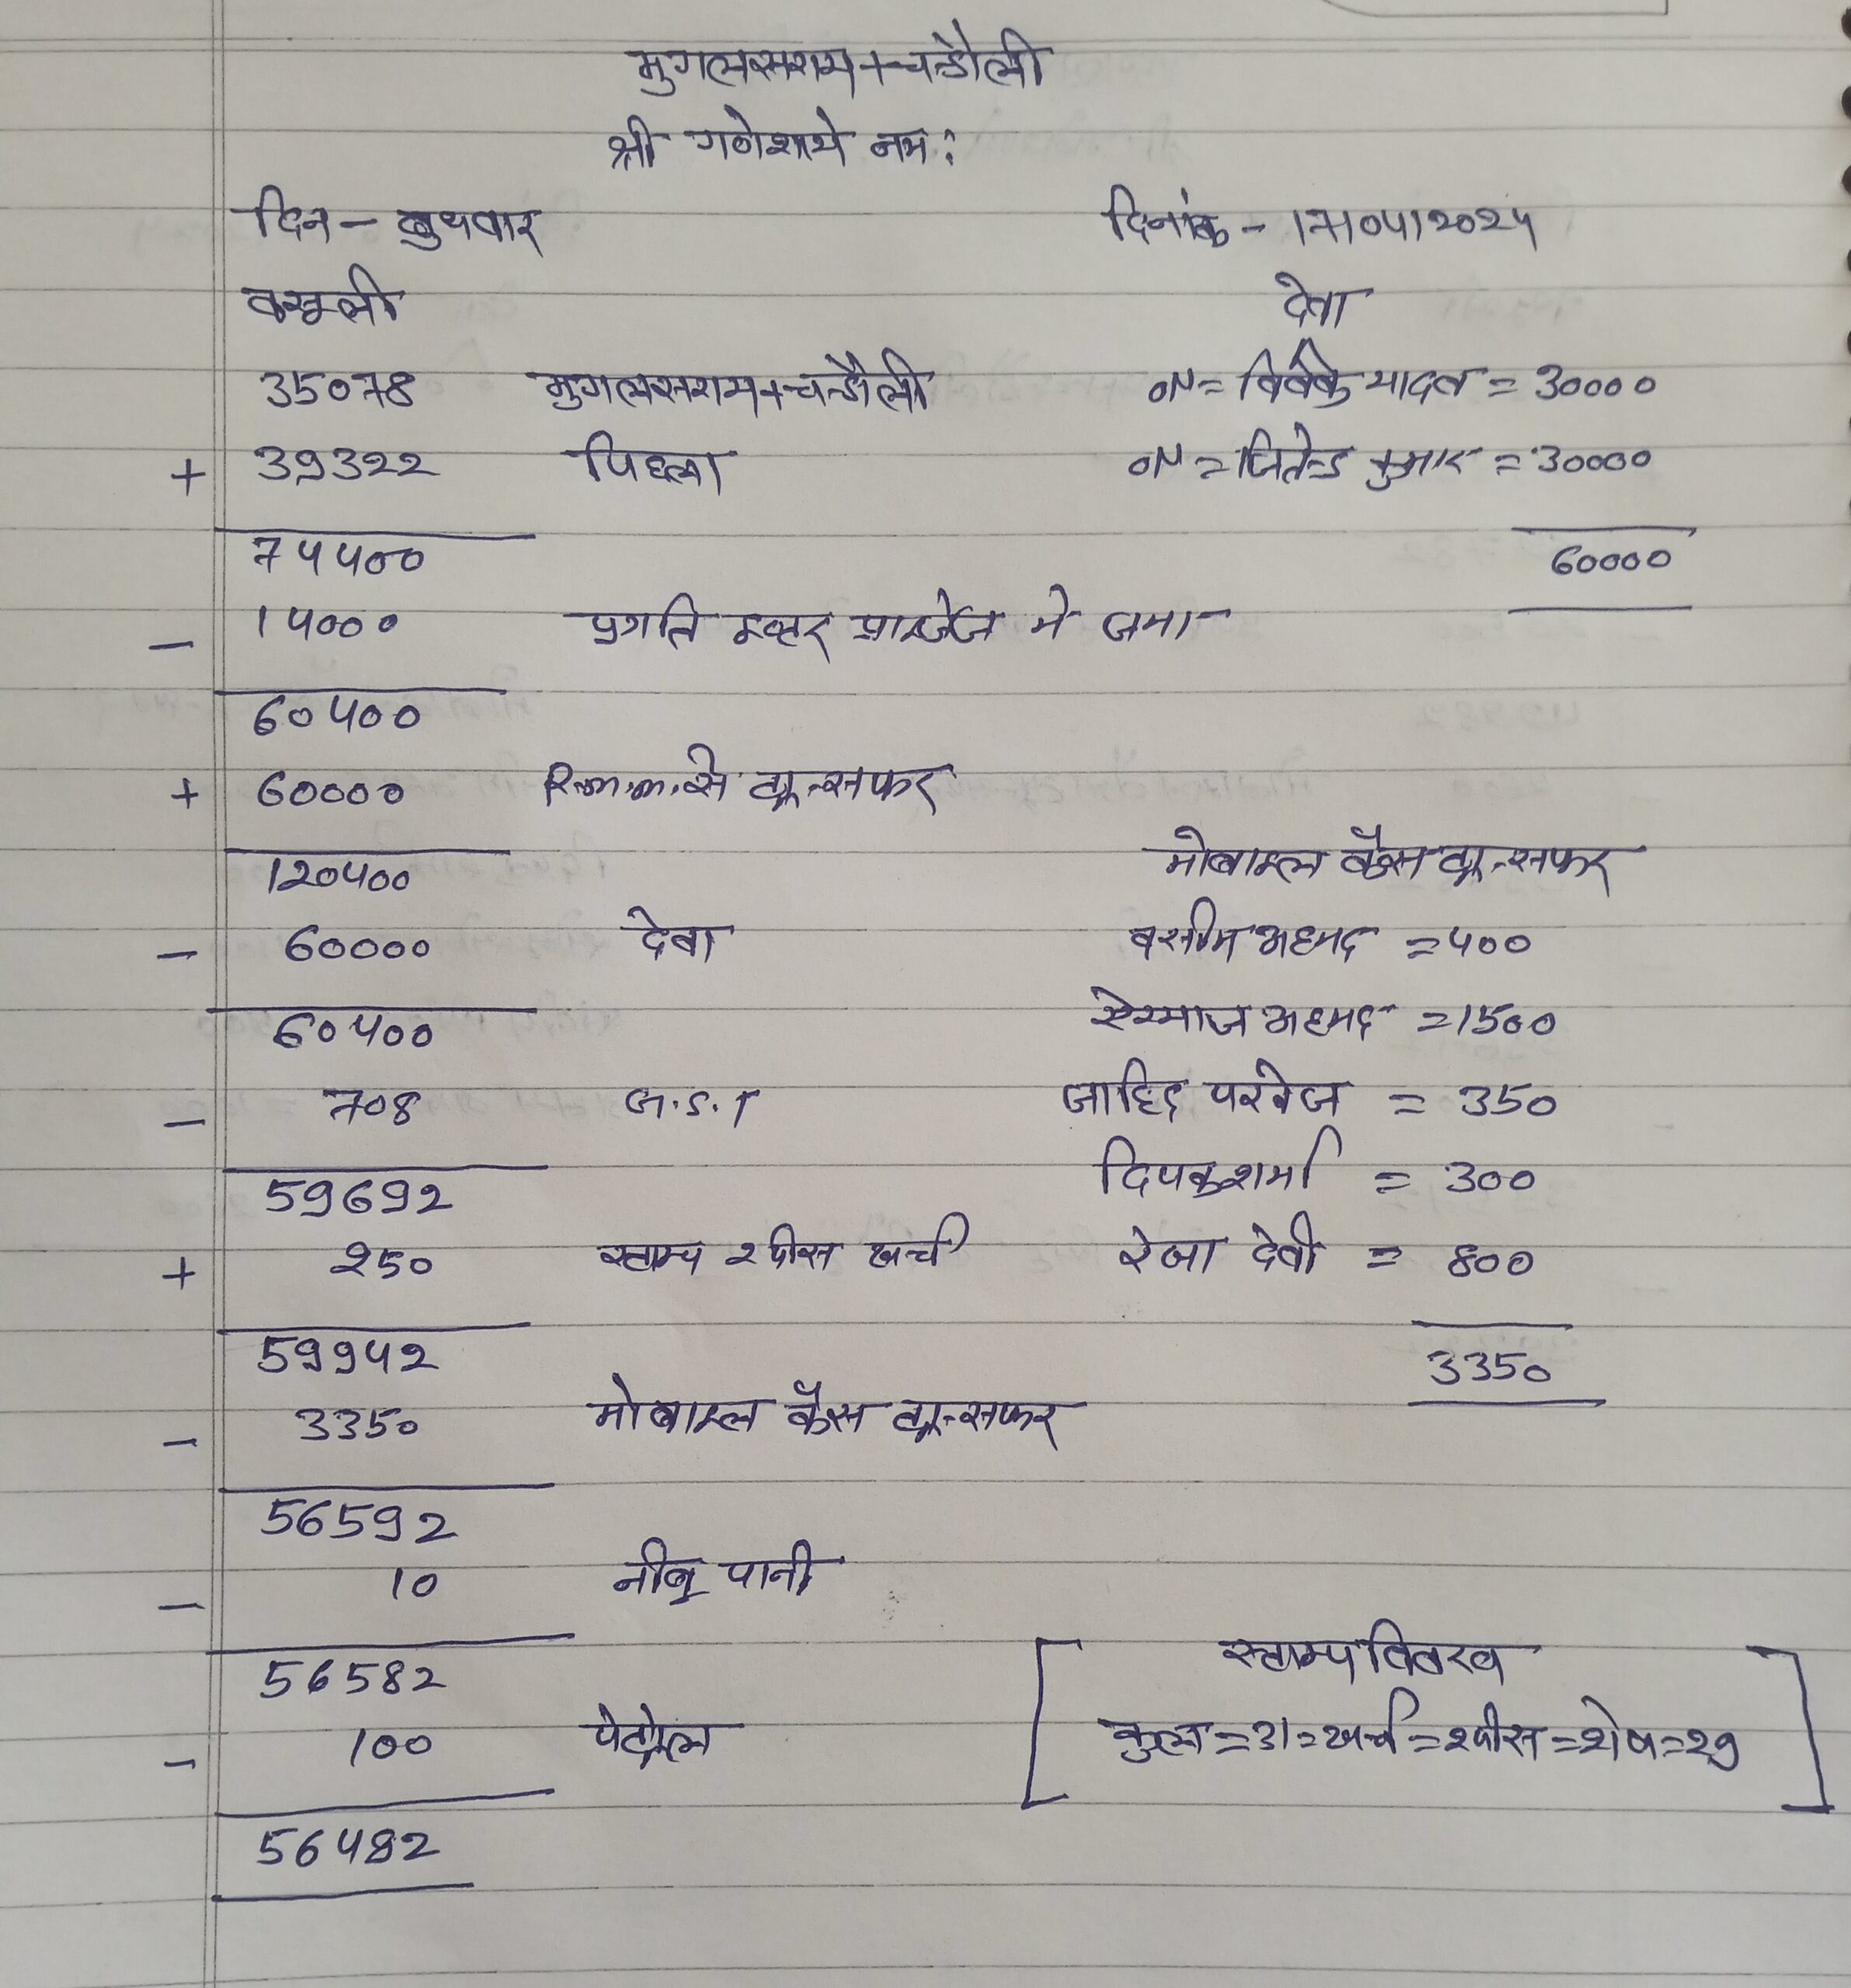 मुगलसराय+चन्दौली
श्री गणेशाये नमः
दिन - बुधवार दिनांक - 17/04/2024
वसूली देवा
35078 मुगलसराय+चन्दौली ON = विवेक यादव = 30000
+ 39322 पिछला ON = जितेन्द्र कुमार = 30000
74400 60000
- 14000 प्रगति इन्टर प्राइजेज मे जमा
60400
+ 60000 R.m.m. से ट्रान्सफर
120400 मोबाइल कैस ट्रान्सफर
- 60000 देवा वसीम अहमद = 400
60400 सेरमाज अहमद = 1500
- 708 G.S.T जाहिद परवेज = 350
59692 दिपक शर्मा = 300
+ 250 स्टाम्प २ पीस खर्च रेखा देवी = 800
59942 3350
- 3350 मोबाइल कैस ट्रान्सफर
56592
- 10 नीबू पानी
56582 स्टाम्प विवरण
- 100 पेट्रोल [कुल = 31 = खर्च = २ पीस = शेष = 29]
56482